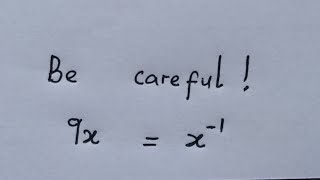 Be careful!
9x = x⁻¹